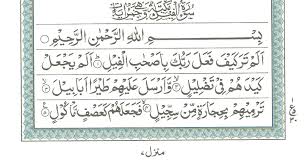 بِسْمِ اللهِ الرَّحْمٰنِ الرَّحِيْمِ
اَلَمْ تَرَكَيْفَ فَعَلَ رَبُّكَ بِاَصْحٰبِ الْفِيْلِ ۝ اَلَمْ يَجْعَلْ
كَيْدَهُمْ فِيْ تَضْلِيْلٍ ۝ وَّاَرْسَلَ عَلَيْهِمْ طَيْرًا اَبَابِيْلَ ۝
تَرْمِيْهِمْ بِحِجَارَةٍ مِّنْ سِجِّيْلٍ ۝ فَجَعَلَهُمْ كَعَصْفٍ مَّاْكُوْلٍ ۝
منزل ٧